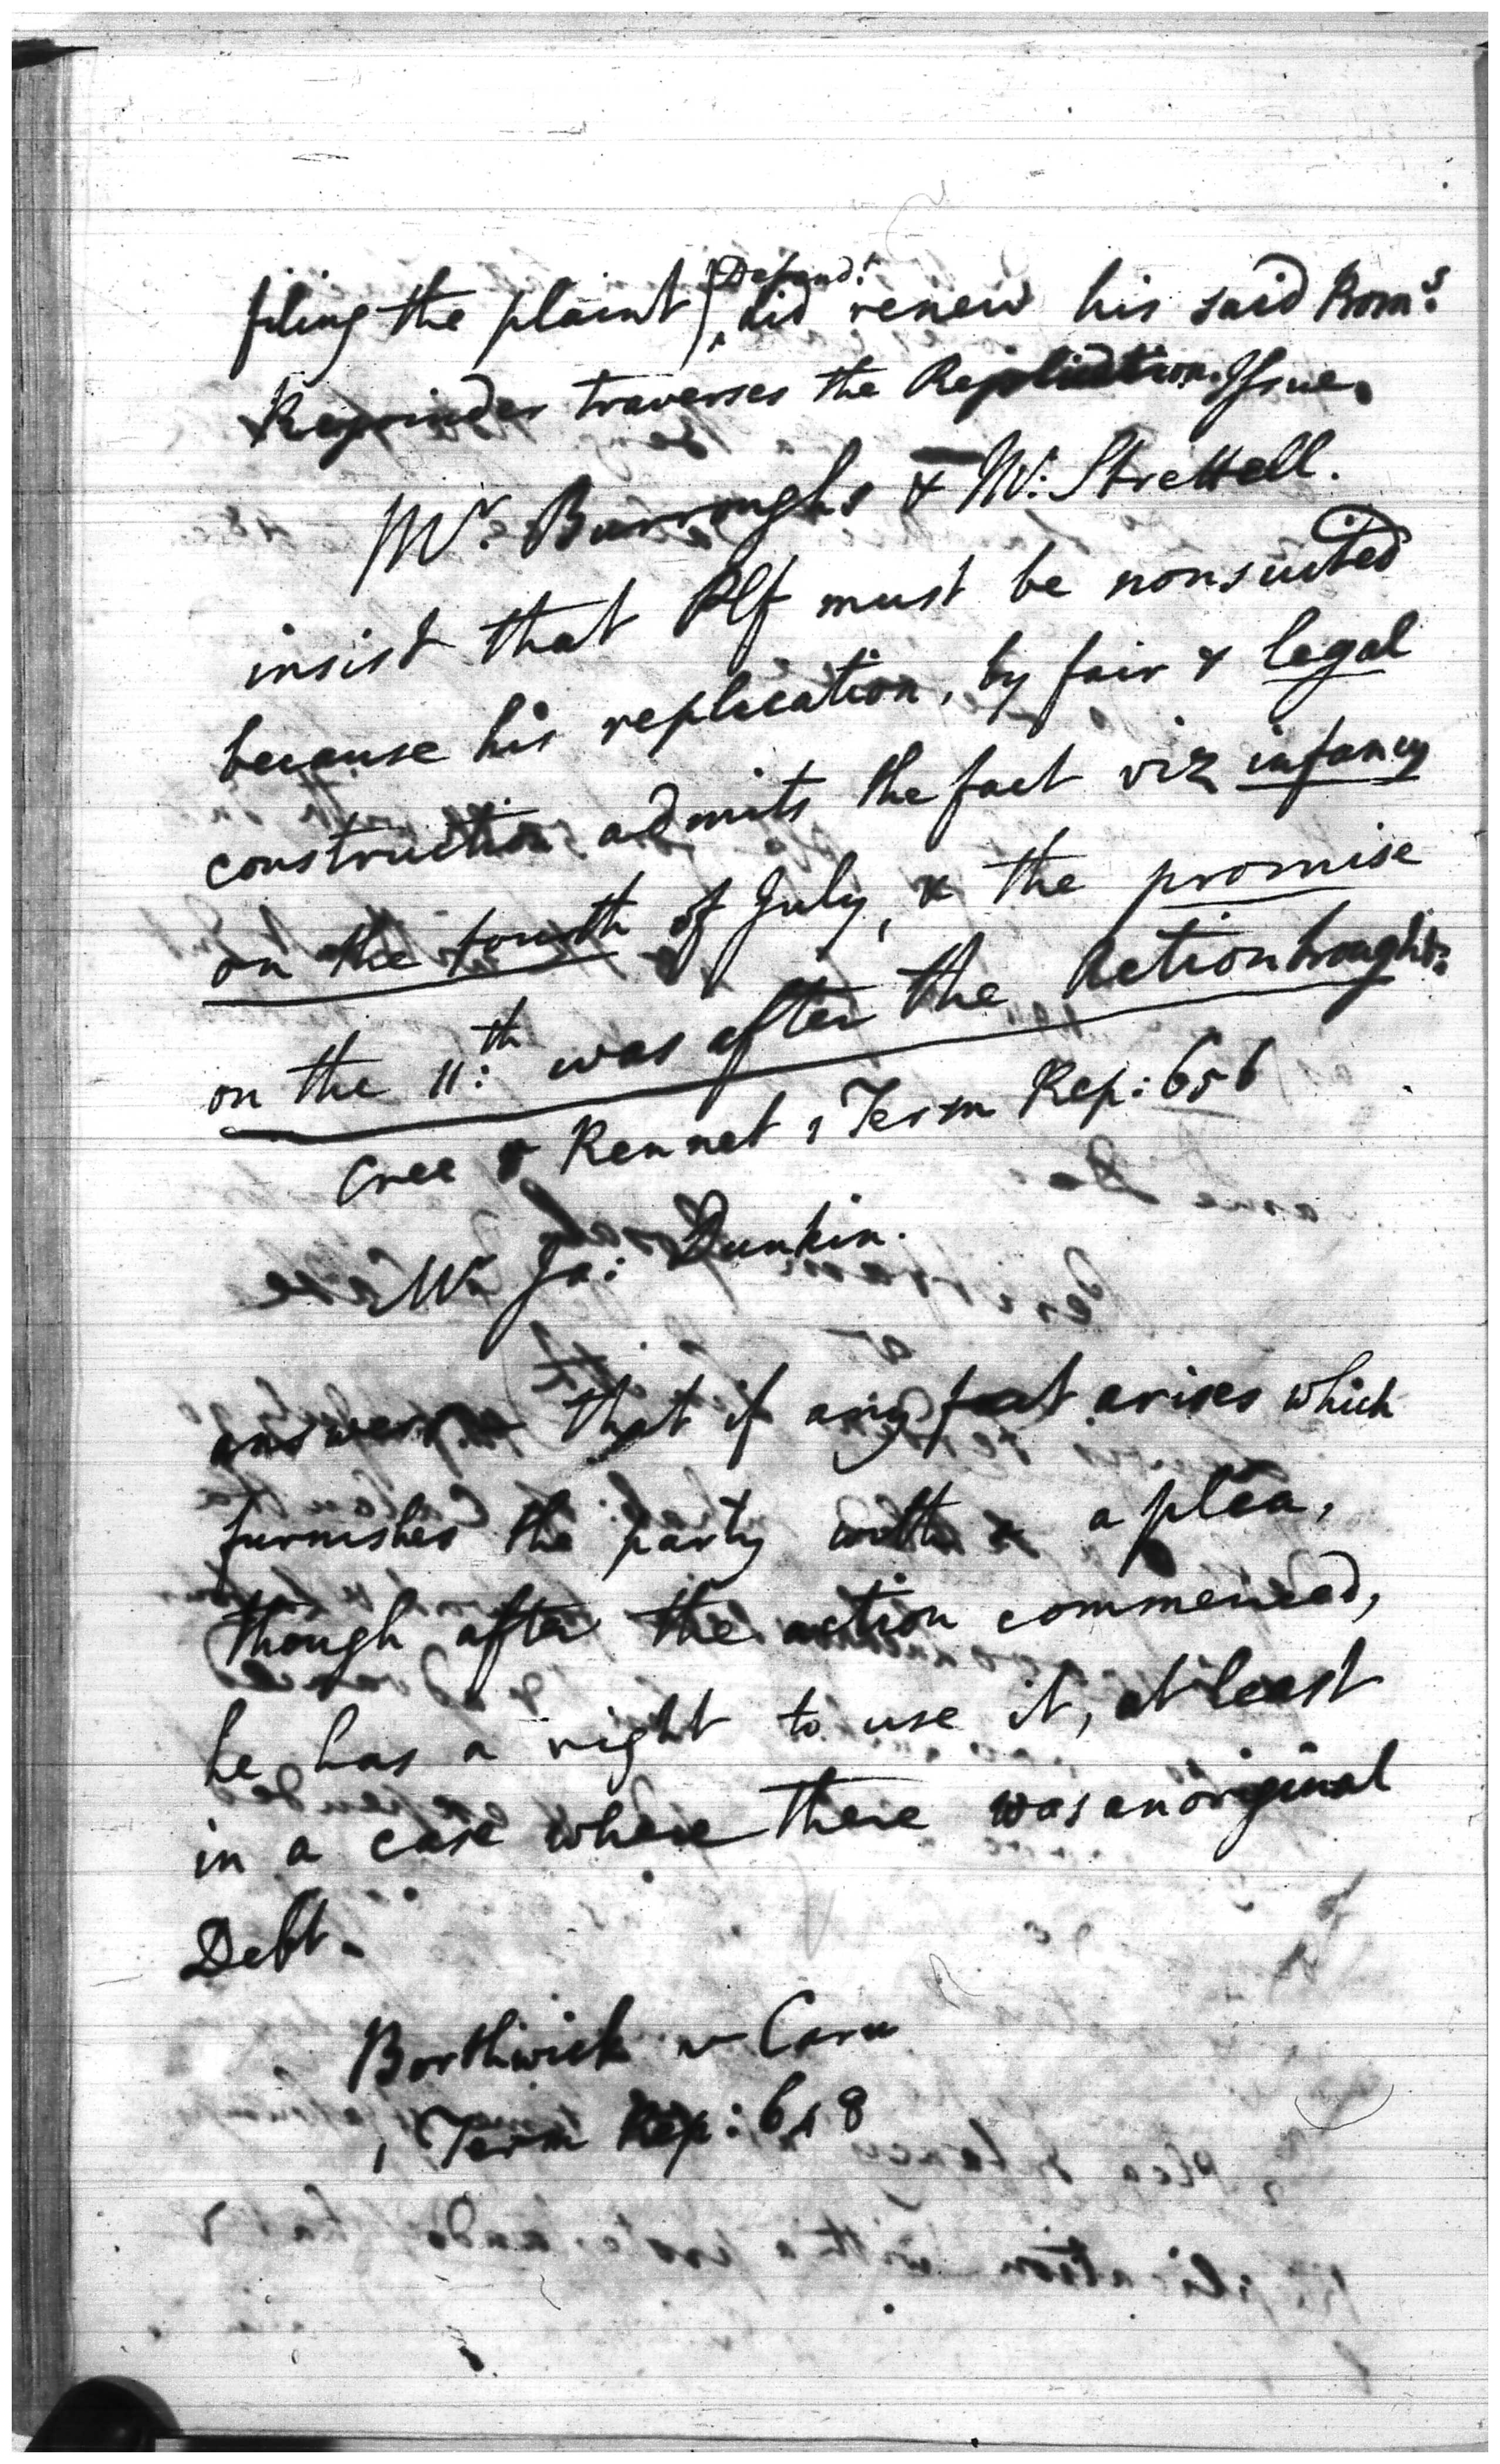 filing the plaint) Defend.t did renew his said Prom.s
Rejoinder traverses the Replication. Issue.
Mr. Burroughs & Mr. Strettell.
insist that Plf must be nonsuited
because his replication, by fair & legal
construction admits the fact viz infancy
on the fourth of July, & the promise
on the 11:th was after the Action brought:
Cree & Rennet 1 Term Rep: 656
Mr Ja: Dunkin.
answers that if any fact arises which
furnishes the party with a plea,
though after the action commenced,
he has a right to use it, at least
in a case where there was an original
Debt.
Borthwick v Caru
1 Term Rep: 648